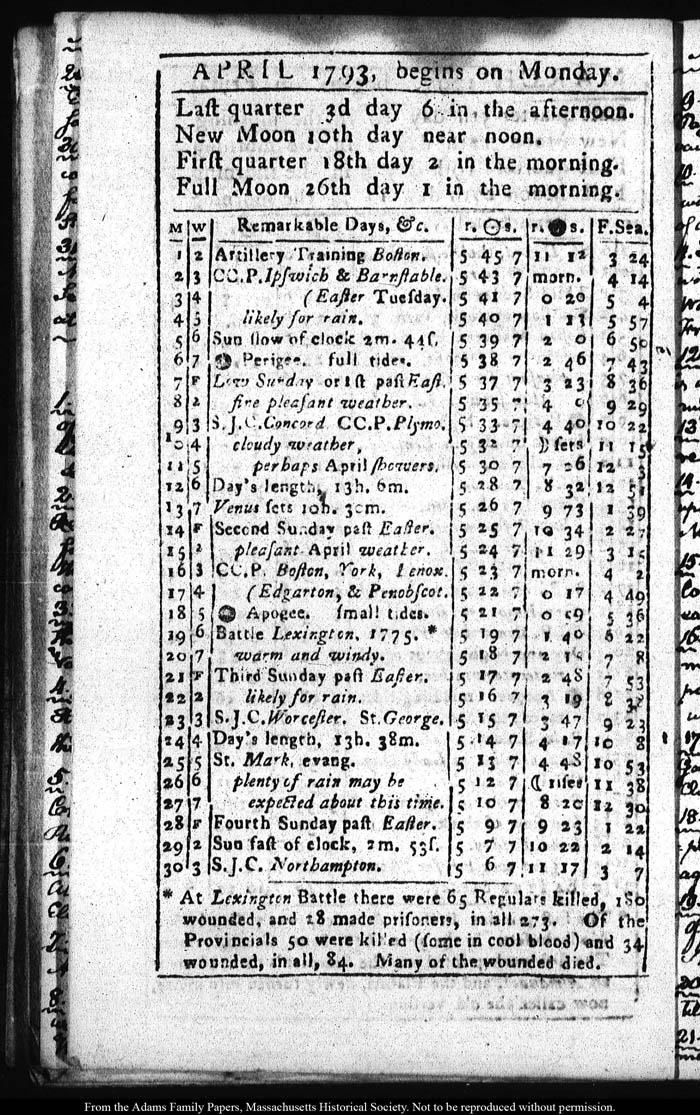 APRIL 1793, begins on Monday.
Laſt quarter 3d day 6 in the afternoon.
New Moon 10th day near noon.
Firſt quarter 18th day 2 in the morning.
Full Moon 26th day 1 in the morning.
M W Remarkable Days, &c. r. ☉ s. r. ● s. F. Sea.
1 2 Artillery Training Boſton. 5 45 7 11 12 3 24
2 3 CC.P. Ipſwich & Barnſtable. 5 43 7 morn. 4 14
3 4 (Eaſter Tueſday. 5 41 7 0 20 5 4
4 5 likely for rain. 5 40 7 1 13 5 57
5 6 Sun ſlow of clock 2m. 44ſ. 5 39 7 2 0 6 50
6 7 ● Perigee. full tides. 5 38 7 2 46 7 43
7 F Low Sunday or 1ſt paſt Eaſt. 5 37 7 3 23 8 36
8 2 fine pleaſant weather. 5 35 7 4 0 9 29
9 3 S.J.C. Concord CC.P. Plymo. 5 33 7 4 40 10 22
10 4 cloudy weather, 5 32 7 ☽ ſets 11 15
11 5 perhaps April ſhowers. 5 30 7 7 26 12 3
12 6 Day's length, 13h. 6m. 5 28 7 8 32 12 51
13 7 Venus ſets 10h. 30m. 5 26 7 9 73 1 39
14 F Second Sunday paſt Eaſter. 5 25 7 10 34 2 27
15 2 pleaſant April weather. 5 24 7 11 29 3 15
16 3 CC.P. Boſton, York, Lenox. 5 23 7 morn. 4 2
17 4 (Edgarton, & Penobſcot. 5 22 7 0 17 4 49
18 5 ● Apogee. ſmall tides. 5 21 7 0 59 5 36
19 6 Battle Lexington, 1775. * 5 19 7 1 40 6 22
20 7 warm and windy. 5 18 7 2 7 8
21 F Third Sunday paſt Eaſter. 5 17 7 2 48 7 53
22 2 likely for rain. 5 16 7 3 19 8 38
23 3 S.J.C. Worceſter. St. George. 5 15 7 3 47 9 23
24 4 Day's length, 13h. 38m. 5 14 7 4 17 10 8
25 5 St. Mark, evang. 5 13 7 4 48 10 53
26 6 plenty of rain may be 5 12 7 ☾ riſes 11 38
27 7 expected about this time. 5 10 7 8 20 12 30
28 F Fourth Sunday paſt Eaſter. 5 9 7 9 23 1 22
29 2 Sun faſt of clock, 2m. 53ſ. 5 7 7 10 22 2 14
30 3 S.J.C. Northampton. 5 6 7 11 17 3 7
* At Lexington Battle there were 65 Regulars killed, 180
wounded, and 28 made priſoners, in all 273. Of the
Provincials 50 were killed (ſome in cool blood) and 34
wounded, in all, 84. Many of the wounded died.
From the Adams Family Papers, Massachusetts Historical Society. Not to be reproduced without permission.